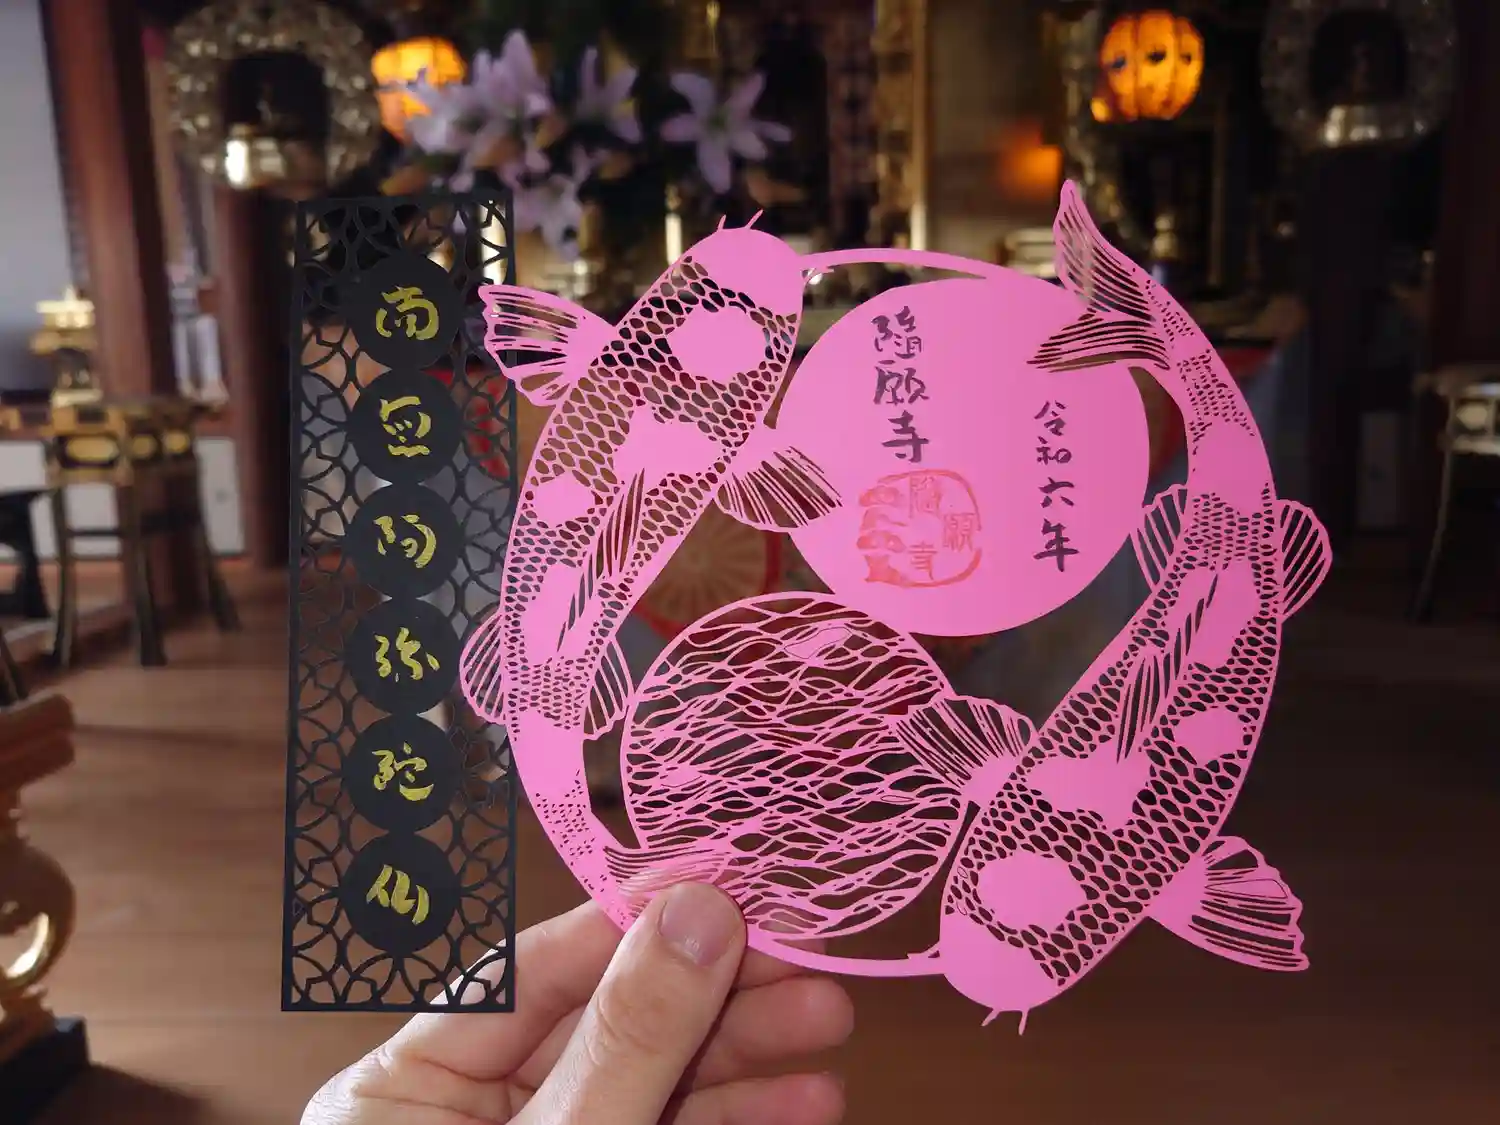 南無阿弥陀仏
令和六年
随願寺
随願寺